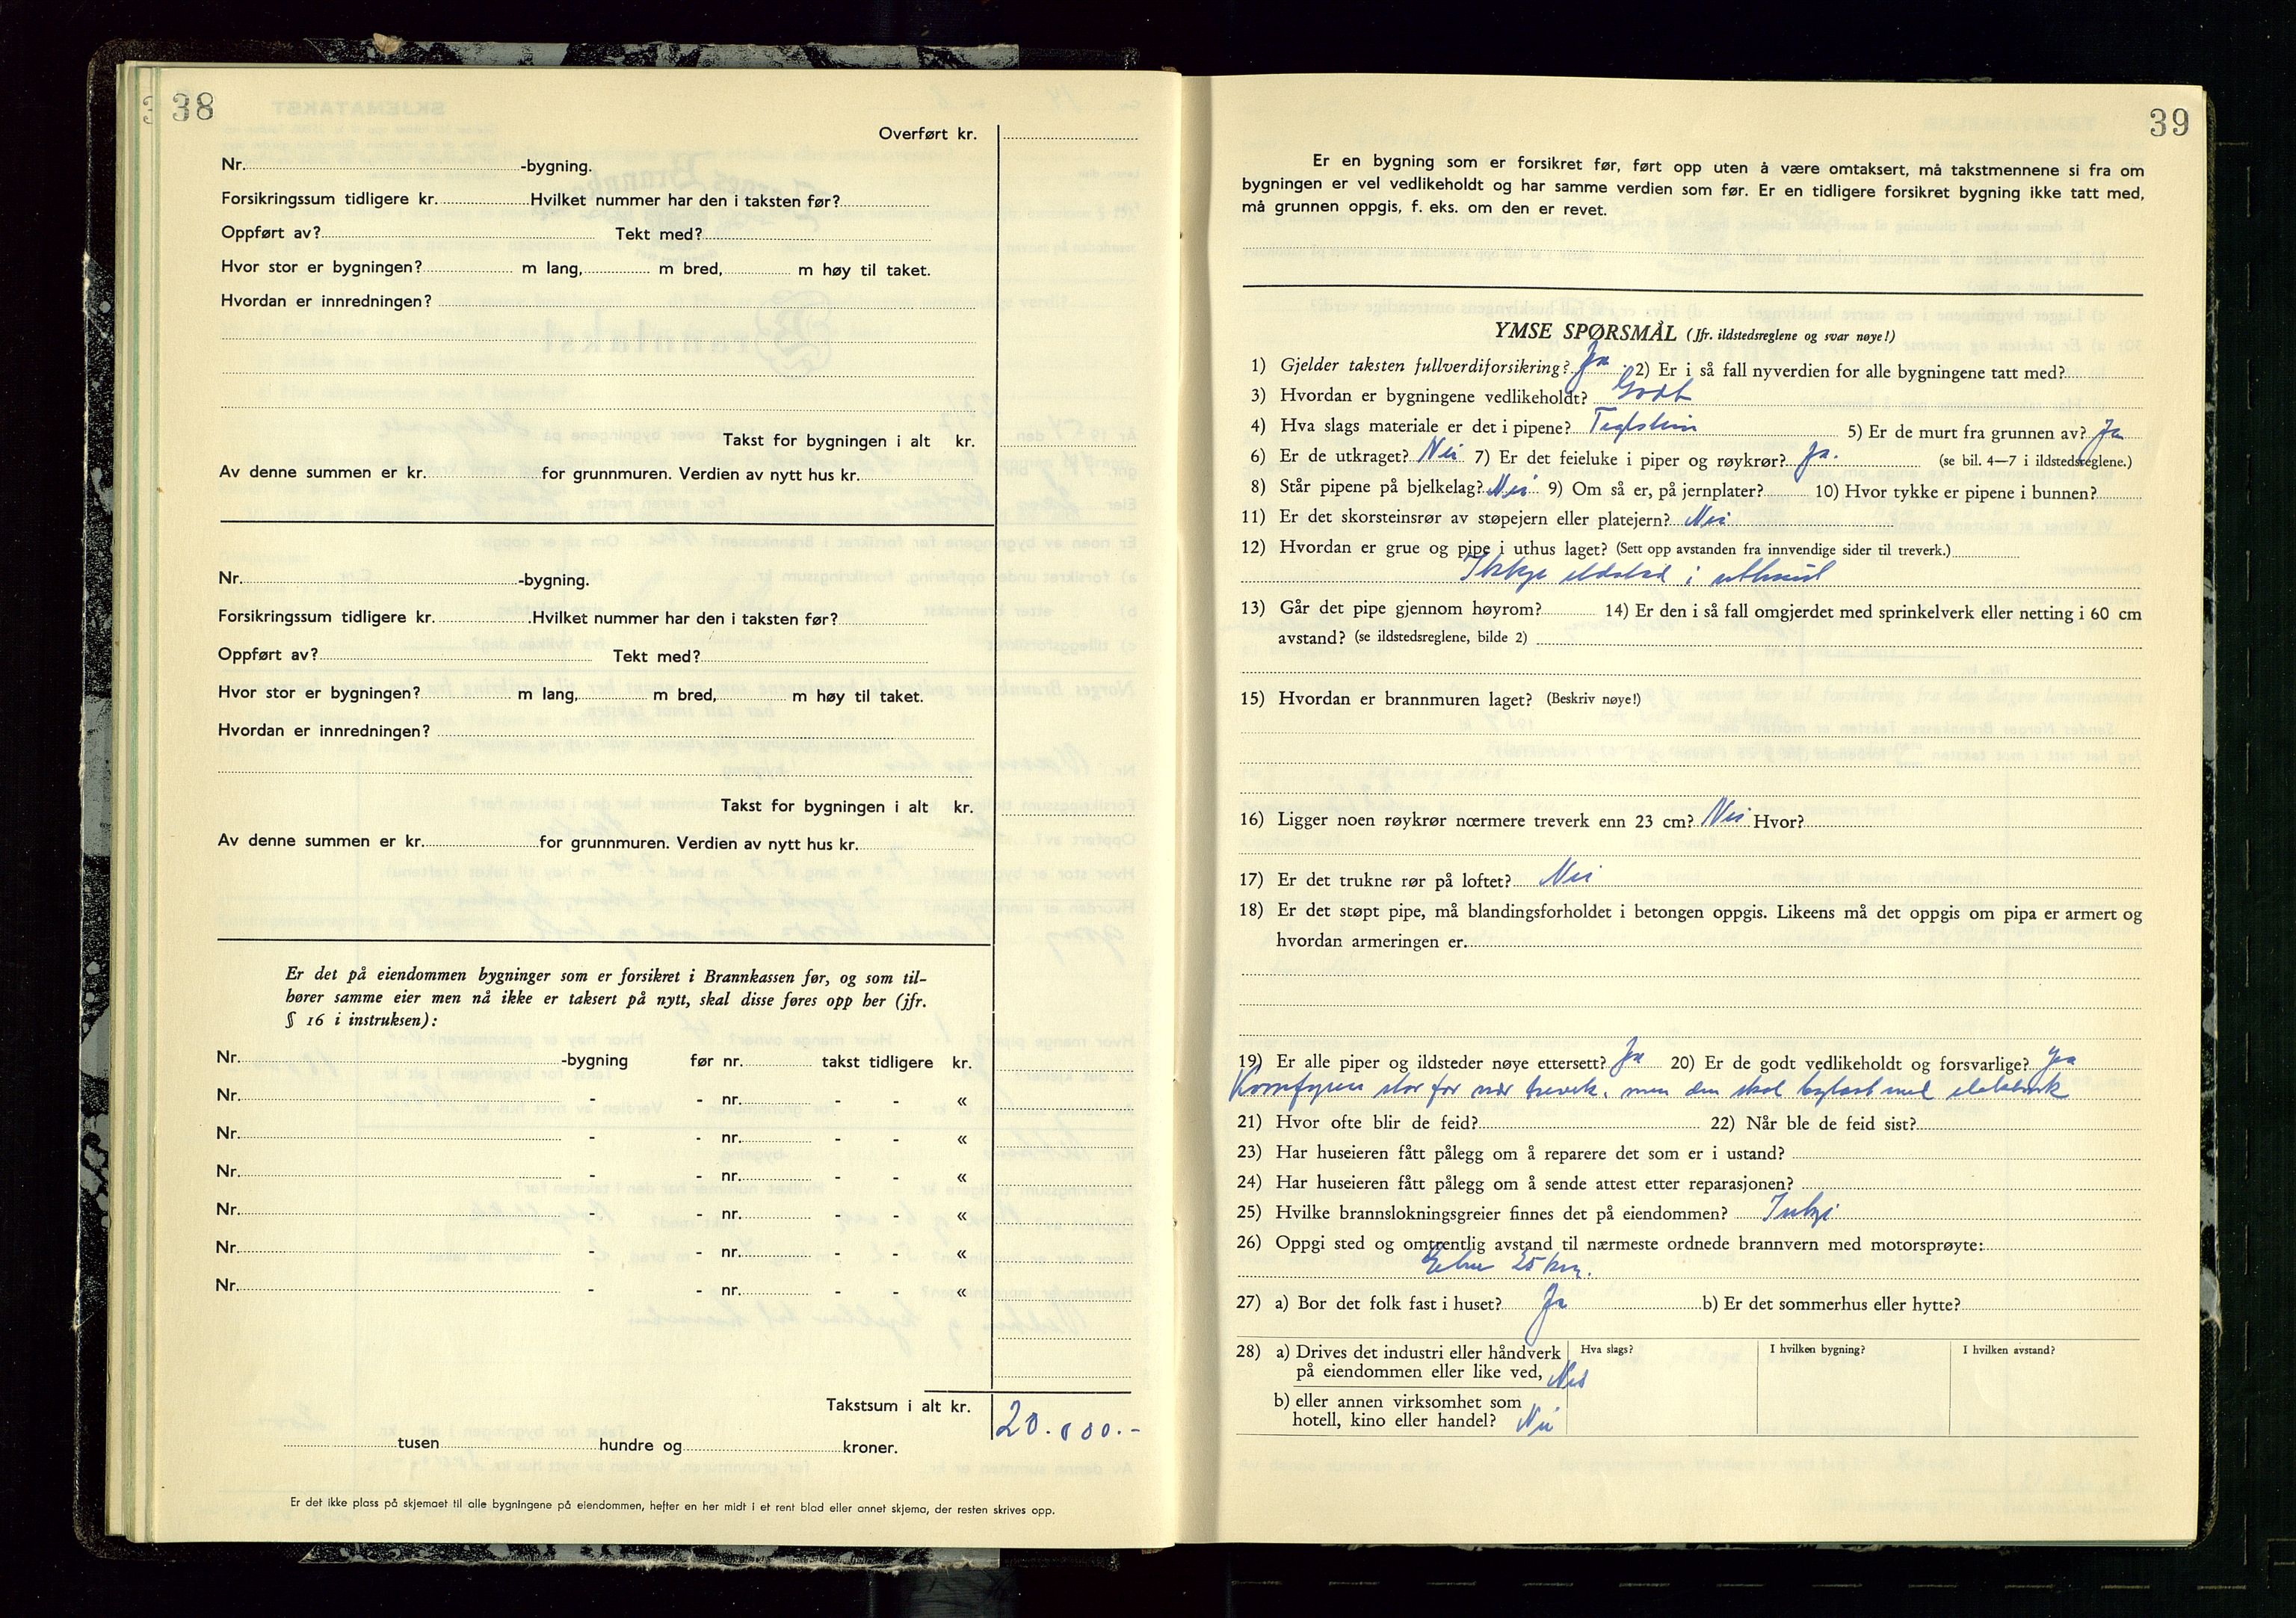 38
Overført kr.
Nr. -bygning.
Forsikringssum tidligere kr. Hvilket nummer har den i taksten før?
Oppført av? Tekt med?
Hvor stor er bygningen? m lang, m bred, m høy til taket.
Hvordan er innredningen?
Takst for bygningen i alt kr.
Av denne summen er kr. for grunnmuren. Verdien av nytt hus kr.
Nr. -bygning.
Forsikringssum tidligere kr. Hvilket nummer har den i taksten før?
Oppført av? Tekt med?
Hvor stor er bygningen? m lang, m bred, m høy til taket.
Hvordan er innredningen?
Takst for bygningen i alt kr.
Av denne summen er kr. for grunnmuren. Verdien av nytt hus kr.
Er det på eiendommen bygninger som er forsikret i Brannkassen før, og som til-
hører samme eier men nå ikke er taksert på nytt, skal disse føres opp her (jfr.
§ 16 i instruksen):
Nr. -bygning før nr. takst tidligere kr.
Nr. - - nr. - - «
Nr. - - nr. - - «
Nr. - - nr. - - «
Nr. - - nr. - - «
Nr. - - nr. - - «
Nr. - - nr. - - «
Takstsum i alt kr. 20.000.-
tusen hundre og kroner.
Er det ikke plass på skjemaet til alle bygningene på eiendommen, hefter en her midt i et rent blad eller annet skjema, der resten skrives opp.
39
Er en bygning som er forsikret før, ført opp uten å være omtaksert, må takstmennene si fra om
bygningen er vel vedlikeholdt og har samme verdien som før. Er en tidligere forsikret bygning ikke tatt med,
må grunnen oppgis, f. eks. om den er revet.
YMSE SPØRSMÅL (Jfr. ildstedsreglene og svar nøye!)
1) Gjelder taksten fullverdiforsikring? Ja 2) Er i så fall nyverdien for alle bygningene tatt med?
3) Hvordan er bygningene vedlikeholdt? Godt
4) Hva slags materiale er det i pipene? Teglstein 5) Er de murt fra grunnen av? Ja
6) Er de utkraget? Nei 7) Er det feieluke i piper og røykrør? Ja. (se bil. 4—7 i ildstedsreglene.)
8) Står pipene på bjelkelag? Nei 9) Om så er, på jernplater? 10) Hvor tykke er pipene i bunnen?
11) Er det skorsteinsrør av støpejern eller platejern? Nei
12) Hvordan er grue og pipe i uthus laget? (Sett opp avstanden fra innvendige sider til treverk.)
Ikkje eldstad i uthuset
13) Går det pipe gjennom høyrom? 14) Er den i så fall omgjerdet med sprinkelverk eller netting i 60 cm
avstand? (se ildstedsreglene, bilde 2)
15) Hvordan er brannmuren laget? (Beskriv nøye!)
16) Ligger noen røykrør nærmere treverk enn 23 cm? Nei Hvor?
17) Er det trukne rør på loftet? Nei
18) Er det støpt pipe, må blandingsforholdet i betongen oppgis. Likeens må det oppgis om pipa er armert og
hvordan armeringen er.
19) Er alle piper og ildsteder nøye ettersett? Ja 20) Er de godt vedlikeholdt og forsvarlige? Ja
Komfyren står for nær treverk, men den skal bytast med elektrisk
21) Hvor ofte blir de feid? 22) Når ble de feid sist?
23) Har huseieren fått pålegg om å reparere det som er i ustand?
24) Har huseieren fått pålegg om å sende attest etter reparasjonen?
25) Hvilke brannslokningsgreier finnes det på eiendommen?
26) Oppgi sted og omtrentlig avstand til nærmeste ordnede brannvern med motorsprøyte:
Etne 25 km.
27) a) Bor det folk fast i huset? Ja b) Er det sommerhus eller hytte?
28) a) Drives det industri eller håndverk Hva slags? I hvilken bygning? I hvilken avstand?
på eiendommen eller like ved, Nei
b) eller annen virksomhet som
hotell, kino eller handel? Nei